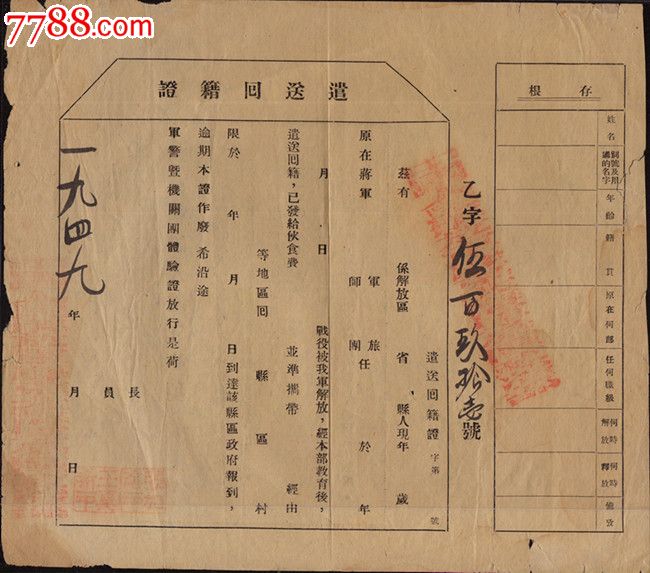 7788.com
存根
姓名
別號及用過的名字
年齡
籍貫
原在何部
任何職級
何時解放
何時釋放
備攷
乙字伍百玖拾壹號
遣送回籍證
遣送回籍證 字第 號
茲有 係解放區 省 縣人現年 歲
原在蔣軍 軍師 旅團 任 於 年
月 日 戰役被我軍解放，經本部教育後，
遣送回籍，已發給伙食費 並準攜帶 經由
等地區回 縣 區 村
限於 年 月 日到達該縣區政府報到，
逾期本證作廢 希沿途
軍警暨機關團體驗證放行是荷
長
員
一九四九年 月 日